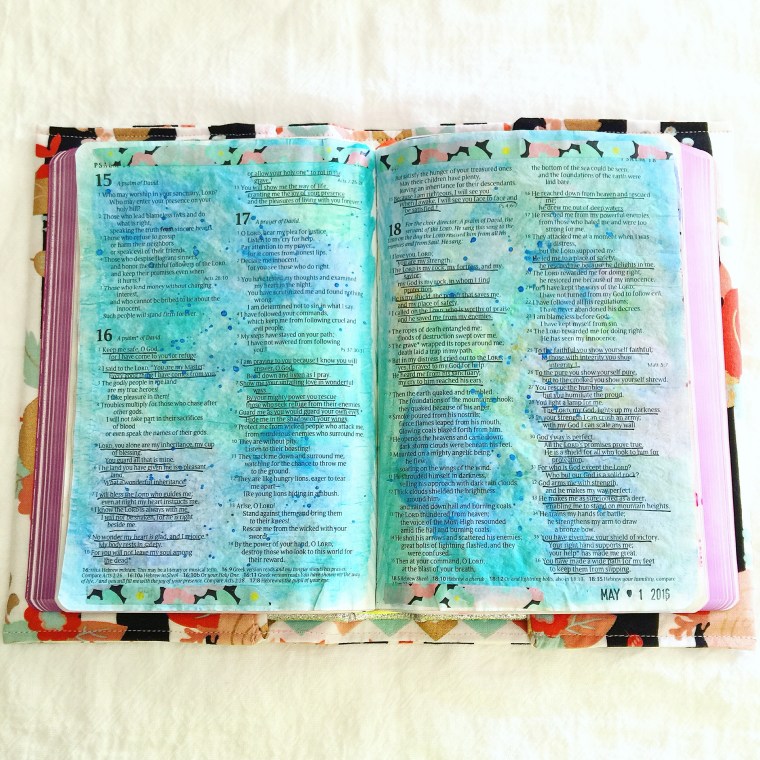 PSALM
15 A psalm of David.
1 Who may worship in your sanctuary, LORD?
Who may enter your presence on your
holy hill?
2 Those who lead blameless lives and do
what is right,
speaking the truth from sincere hearts.
3 Those who refuse to gossip
or harm their neighbors
or speak evil of their friends.
4 Those who despise flagrant sinners,
and honor the faithful followers of the LORD,
and keep their promises even when
it hurts.
5 Those who lend money without charging
interest,
and who cannot be bribed to lie about the
innocent.
Such people will stand firm forever.
16 A psalm* of David.
1 Keep me safe, O God,
for I have come to you for refuge.
2 I said to the LORD, "You are my Master!
Every good thing I have comes from you."
3 The godly people in the land
are my true heroes!
I take pleasure in them!
4 Troubles multiply for those who chase after
other gods.
I will not take part in their sacrifices
of blood
or even speak the names of their gods.
5 LORD, you alone are my inheritance, my cup
of blessing.
You guard all that is mine.
6 The land you have given me is a pleasant
land.
What a wonderful inheritance!
7 I will bless the LORD who guides me;
even at night my heart instructs me.
8 I know the LORD is always with me.
I will not be shaken, for he is right
beside me.
9 No wonder my heart is glad, and I rejoice.*
My body rests in safety.
10 For you will not leave my soul among
the dead*
or allow your holy one* to rot in the
grave.
11 You will show me the way of life,
granting me the joy of your presence
and the pleasures of living with you forever.*
17 A prayer of David.
1 O LORD, hear my plea for justice.
Listen to my cry for help.
Pay attention to my prayer,
for it comes from honest lips.
2 Declare me innocent,
for you see those who do right.
3 You have tested my thoughts and examined
my heart in the night.
You have scrutinized me and found nothing
wrong.
I am determined not to sin in what I say.
4 I have followed your commands,
which keep me from following cruel and
evil people.
5 My steps have stayed on your path;
I have not wavered from following
you.
6 I am praying to you because I know you will
answer, O God.
Bend down and listen as I pray.
7 Show me your unfailing love in wonderful
ways.
By your mighty power you rescue
those who seek refuge from their enemies.
8 Guard me as you would guard your own eyes.*
Hide me in the shadow of your wings.
9 Protect me from wicked people who attack me,
from murderous enemies who surround me.
10 They are without pity.
Listen to their boasting!
11 They track me down and surround me,
watching for the chance to throw me
to the ground.
12 They are like hungry lions, eager to tear
me apart—
like young lions hiding in ambush.
13 Arise, O LORD!
Stand against them, and bring them
to their knees!
Rescue me from the wicked with your
sword!
14 By the power of your hand, O LORD,
destroy those who look to this world for
their reward.
But satisfy the hunger of your treasured ones.
May their children have plenty,
leaving an inheritance for their descendants.
15 Because I am righteous, I will see you.
When I awake, I will see you face to face and
be satisfied.
18 For the choir director: A psalm of David, the
servant of the LORD. He sang this song to the
LORD on the day the LORD rescued him from all his
enemies and from Saul. He sang:
1 I love you, LORD;
you are my strength.
2 The LORD is my rock, my fortress, and my
savior;
my God is my rock, in whom I find
protection.
He is my shield, the power that saves me,
and my place of safety.
3 I called on the LORD, who is worthy of praise,
and he saved me from my enemies.
4 The ropes of death entangled me;
floods of destruction swept over me.
5 The grave* wrapped its ropes around me;
death laid a trap in my path.
6 But in my distress I cried out to the LORD;
yes, I prayed to my God for help.
He heard me from his sanctuary;
my cry to him reached his ears.
7 Then the earth quaked and trembled.
The foundations of the mountains shook;
they quaked because of his anger.
8 Smoke poured from his nostrils;
fierce flames leaped from his mouth.
Glowing coals blazed forth from him.
9 He opened the heavens and came down;
dark storm clouds were beneath his feet.
10 Mounted on a mighty angelic being,*
he flew,
soaring on the wings of the wind.
11 He shrouded himself in darkness,
veiling his approach with dark rain clouds.
12 Thick clouds shielded the brightness
around him
and rained down hail and burning coals.*
13 The LORD thundered from heaven;
the voice of the Most High resounded
amid the hail and burning coals.
14 He shot his arrows and scattered his enemies;
great bolts of lightning flashed, and they
were confused.
15 Then at your command, O LORD,
at the blast of your breath,
the bottom of the sea could be seen,
and the foundations of the earth were
laid bare.
16 He reached down from heaven and rescued
me;
he drew me out of deep waters.
17 He rescued me from my powerful enemies,
from those who hated me and were too
strong for me.
18 They attacked me at a moment when I was in
distress,
but the LORD supported me.
19 He led me to a place of safety;
he rescued me because he delights in me.
20 The LORD rewarded me for doing right;
he restored me because of my innocence.
21 For I have kept the ways of the LORD;
I have not turned from my God to follow evil.
22 I have followed all his regulations;
I have never abandoned his decrees.
23 I am blameless before God;
I have kept myself from sin.
24 The LORD rewarded me for doing right.
He has seen my innocence.
25 To the faithful you show yourself faithful;
to those with integrity you show
integrity.
26 To the pure you show yourself pure,
but to the crooked you show yourself shrewd.
27 You rescue the humble,
but you humiliate the proud.
28 You light a lamp for me.
The LORD, my God, lights up my darkness.
29 In your strength I can crush an army;
with my God I can scale any wall.
30 God's way is perfect.
All the LORD's promises prove true.
He is a shield for all who look to him for
protection.
31 For who is God except the LORD?
Who but our God is a solid rock?
32 God arms me with strength,
and he makes my way perfect.
33 He makes me as surefooted as a deer,
enabling me to stand on mountain heights.
34 He trains my hands for battle;
he strengthens my arm to draw
a bronze bow.
35 You have given me your shield of victory.
Your right hand supports me;
your help* has made me great.
36 You have made a wide path for my feet
to keep them from slipping.
MAY 1 2016